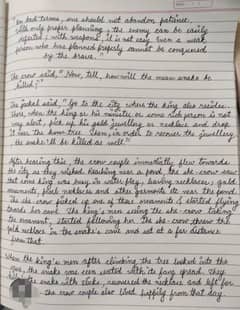 "In bad times, one should not abandon patience.
With only proper planning, the enemy can be easily
defeated, with weapons it is not easy. Even a weak
person who has planned properly cannot be conquered
by the brave."
The crow said, "Now, tell, how will the mean snake be
killed?"
The jackal said, "Go to the city where the king also resides.
There, when the king or his minister or some rich person is not
very alert, pick up the gold jewellery or necklace and drop
it near the home tree. Then, in order to recover the jewellery,
the snake'll be killed as well."
After hearing this, the crow couple immediately flew towards
the city as they wished. Reaching near a pond, the she-crow saw
that some king was busy in water play, leaving necklaces, gold
ornaments, pearl necklaces and other garments etc near the pond.
The she crow picked up one of those ornaments & started flying
towards her cave. The king's men seeing the she crow taking
the ornament, started following her. The she crow threw the
gold necklace in the snake's cave and sat at a far distance
from that.
When the king's men after climbing the tree looked into the
cave, the snake was seen seated with its fang spread. They
the snake with sticks, recovered the necklace and left for
the crow couple also lived happily from that day.